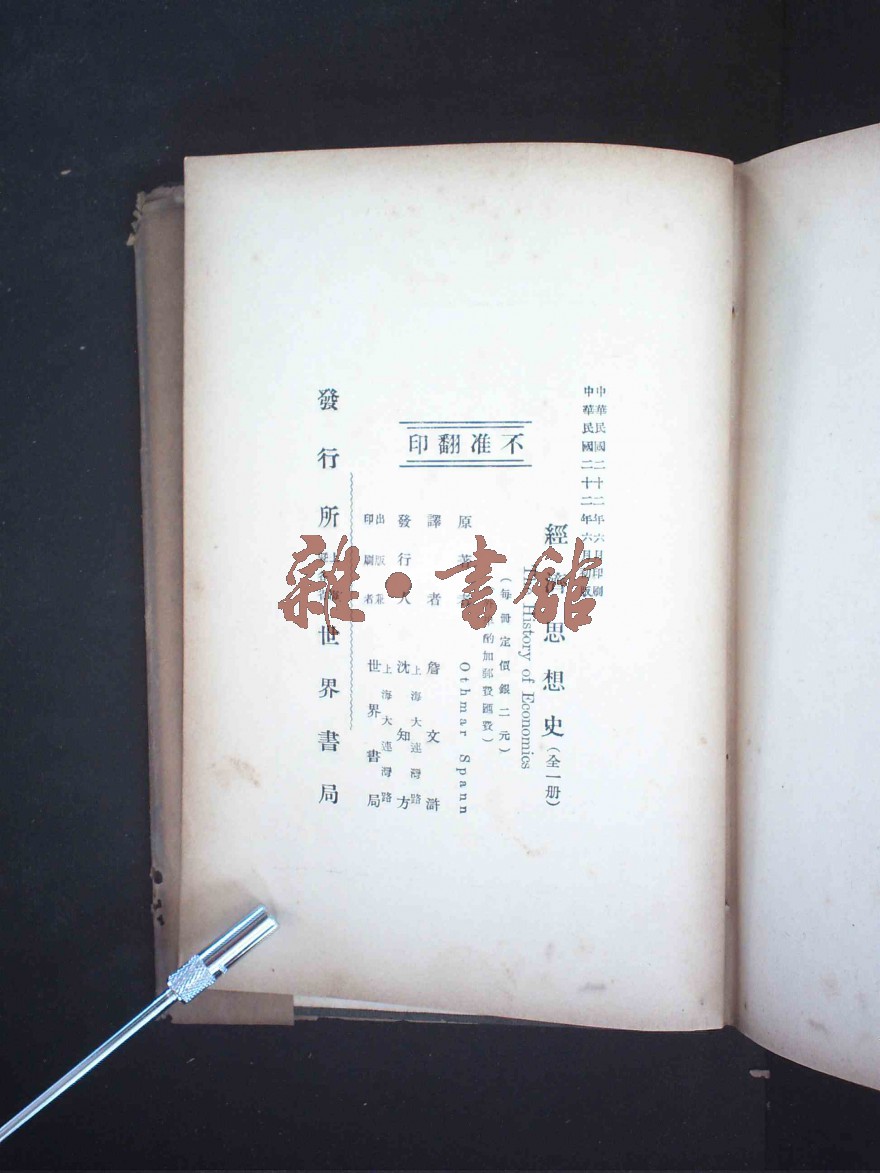 中華民國二十二年六月印刷
中華民國二十二年六月初版
經濟思想史(全一册)
The History of Economics
(每册定價銀二元)
酌加郵費匯費)
不准翻印
原著者 Othmar Spann
譯者 詹文滸
發行人 沈知方
上海大連灣路
出版兼印刷者 世界書局
上海大連灣路
發行所 世界書局
雜·書館